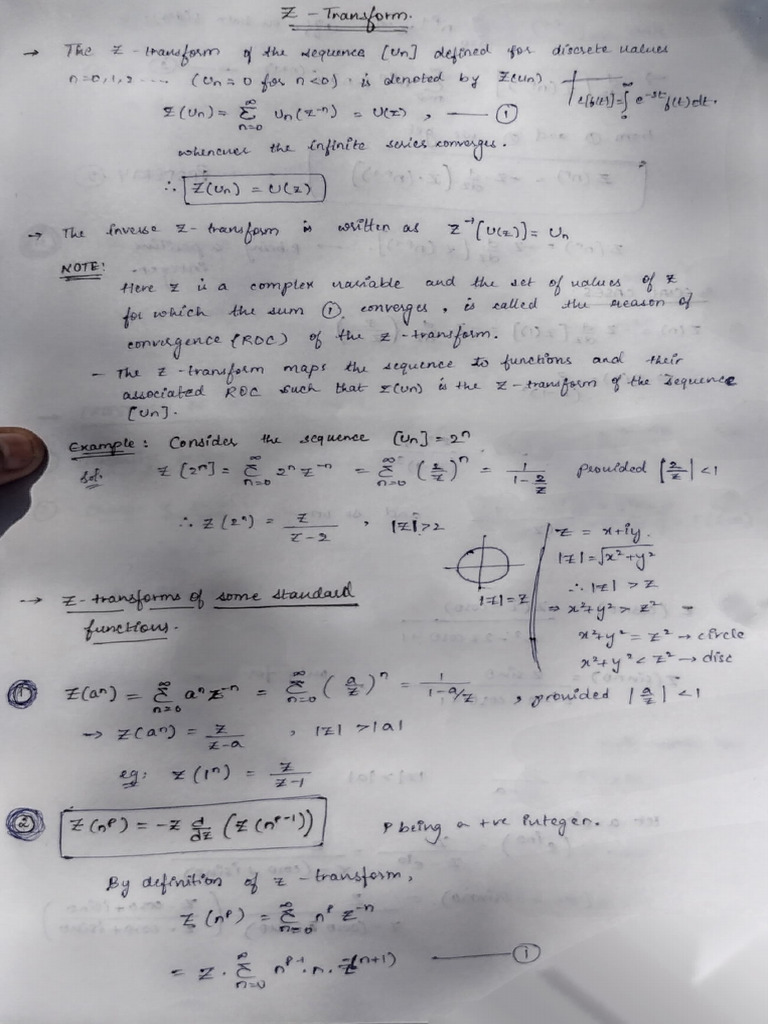 Z - Transform.
→ The Z - transform of the sequence [Un] defined for discrete values
n=0,1,2 ..... (Un = 0 for n<0) is denoted by Z(Un).
L[f(t)] = ∫₀^∞ e^-st f(t) dt.
Z(Un) = ∞Σn=0 Un (z^-n) = U(z) , —— ①
whenever the infinite series converges.
∴ Z(Un) = U(z)
→ The inverse Z - transform is written as Z^-1 [U(z)] = Un
NOTE:
Here Z is a complex variable and the set of values of Z
for which the sum ① converges, is called the reason of
convergence (ROC) of the Z - transform.
- The Z - transform maps the sequence to functions and their
associated ROC such that Z(Un) is the Z - transform of the Sequence
[Un].
Example: Consider the sequence [Un] = 2^n
Sol. Z[2^n] = ∞Σn=0 2^n z^-n = ∞Σn=0 (2/z)^n = 1/(1 - 2/z) provided |2/z| < 1
∴ Z(2^n) = z/(z-2) , |z| > 2
|z| = 2
z = x+iy.
|z| = √(x²+y²)
∴ |z| > 2
⇒ x²+y² > 2²
x²+y² = 2² → circle
x²+y² < 2² → disc
→ Z - transforms of some standard
functions.
① Z(a^n) = ∞Σn=0 a^n z^-n = ∞Σn=0 (a/z)^n = 1/(1 - a/z) , provided |a/z| < 1
→ Z(a^n) = z/(z-a) , |z| > |a|
eg: Z(1^n) = z/(z-1)
② Z(n^p) = -z d/dz (Z(n^p-1)) p being a +ve integer.
By definition of Z - transform,
Z(n^p) = ∞Σn=0 n^p z^-n
= z . ∞Σn=0 n^p-1 . n . z^-(n+1) —— ①